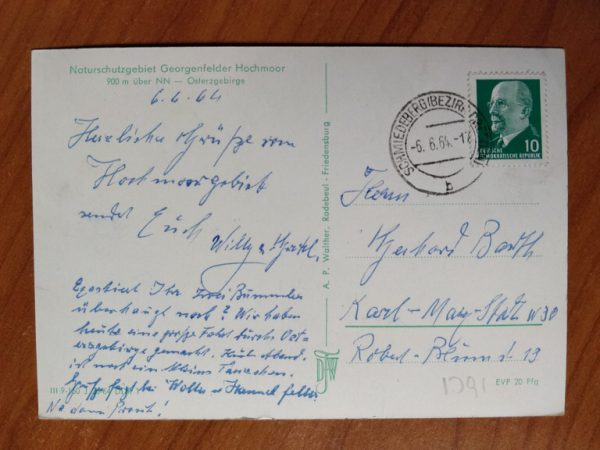 Naturschutzgebiet Georgenfelder Hochmoor
900 m über NN — Osterzgebirge
6.6.64
Herzliche Grüße vom
Hochmoorgebiet
sendet Euch
Willy u.
Existiert Ihr zwei Bummler
überhaupt noch? Wir haben
heute eine große Fahrt durchs Ost-
erzgebirge gemacht. Heute abend
ist noch ein kleines
bei Walter u. Hannel
Na dann Prosit!
III-9-160
A. P. Walther, Radebeul - Friedensburg
SCHMIEDEBERG (BEZIRK
-6.6.64.-
b
DEUTSCHE
DEMOKRATISCHE REPUBLIK
10
Herrn
Gerhard Barth
Karl-Marx-Stadt W30
Robert-Blum 19
1D91
EVP 20 Pfg